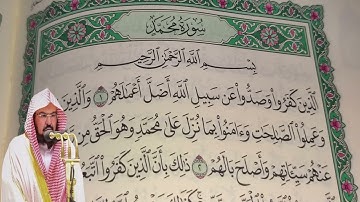 سُورَةُ مُحَمَّدٍ
بِسْمِ اللَّهِ الرَّحْمَٰنِ الرَّحِيمِ
الَّذِينَ كَفَرُوا وَصَدُّوا عَن سَبِيلِ اللَّهِ أَضَلَّ أَعْمَالَهُمْ ١ وَالَّذِينَ
وَعَمِلُوا الصَّالِحَاتِ وَءَامَنُوا بِمَا نُزِّلَ عَلَىٰ مُحَمَّدٍ وَهُوَ الْحَقُّ مِن
عَنْهُمْ سَيِّئَاتِهِمْ وَأَصْلَحَ بَالَهُمْ ٢ ذَٰلِكَ بِأَنَّ الَّذِينَ كَفَرُوا اتَّبَعُوا